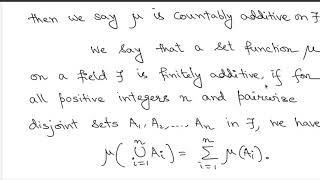 then we say μ is countably additive on ℱ
We say that a set function μ
on a field ℱ is finitely additive, if for
all positive integers n and pairwise
disjoint sets A₁, A₂, ..., Aₙ in ℱ, we have
μ(⋃ᵢ₌₁ⁿ Aᵢ) = ∑ᵢ₌₁ⁿ μ(Aᵢ).